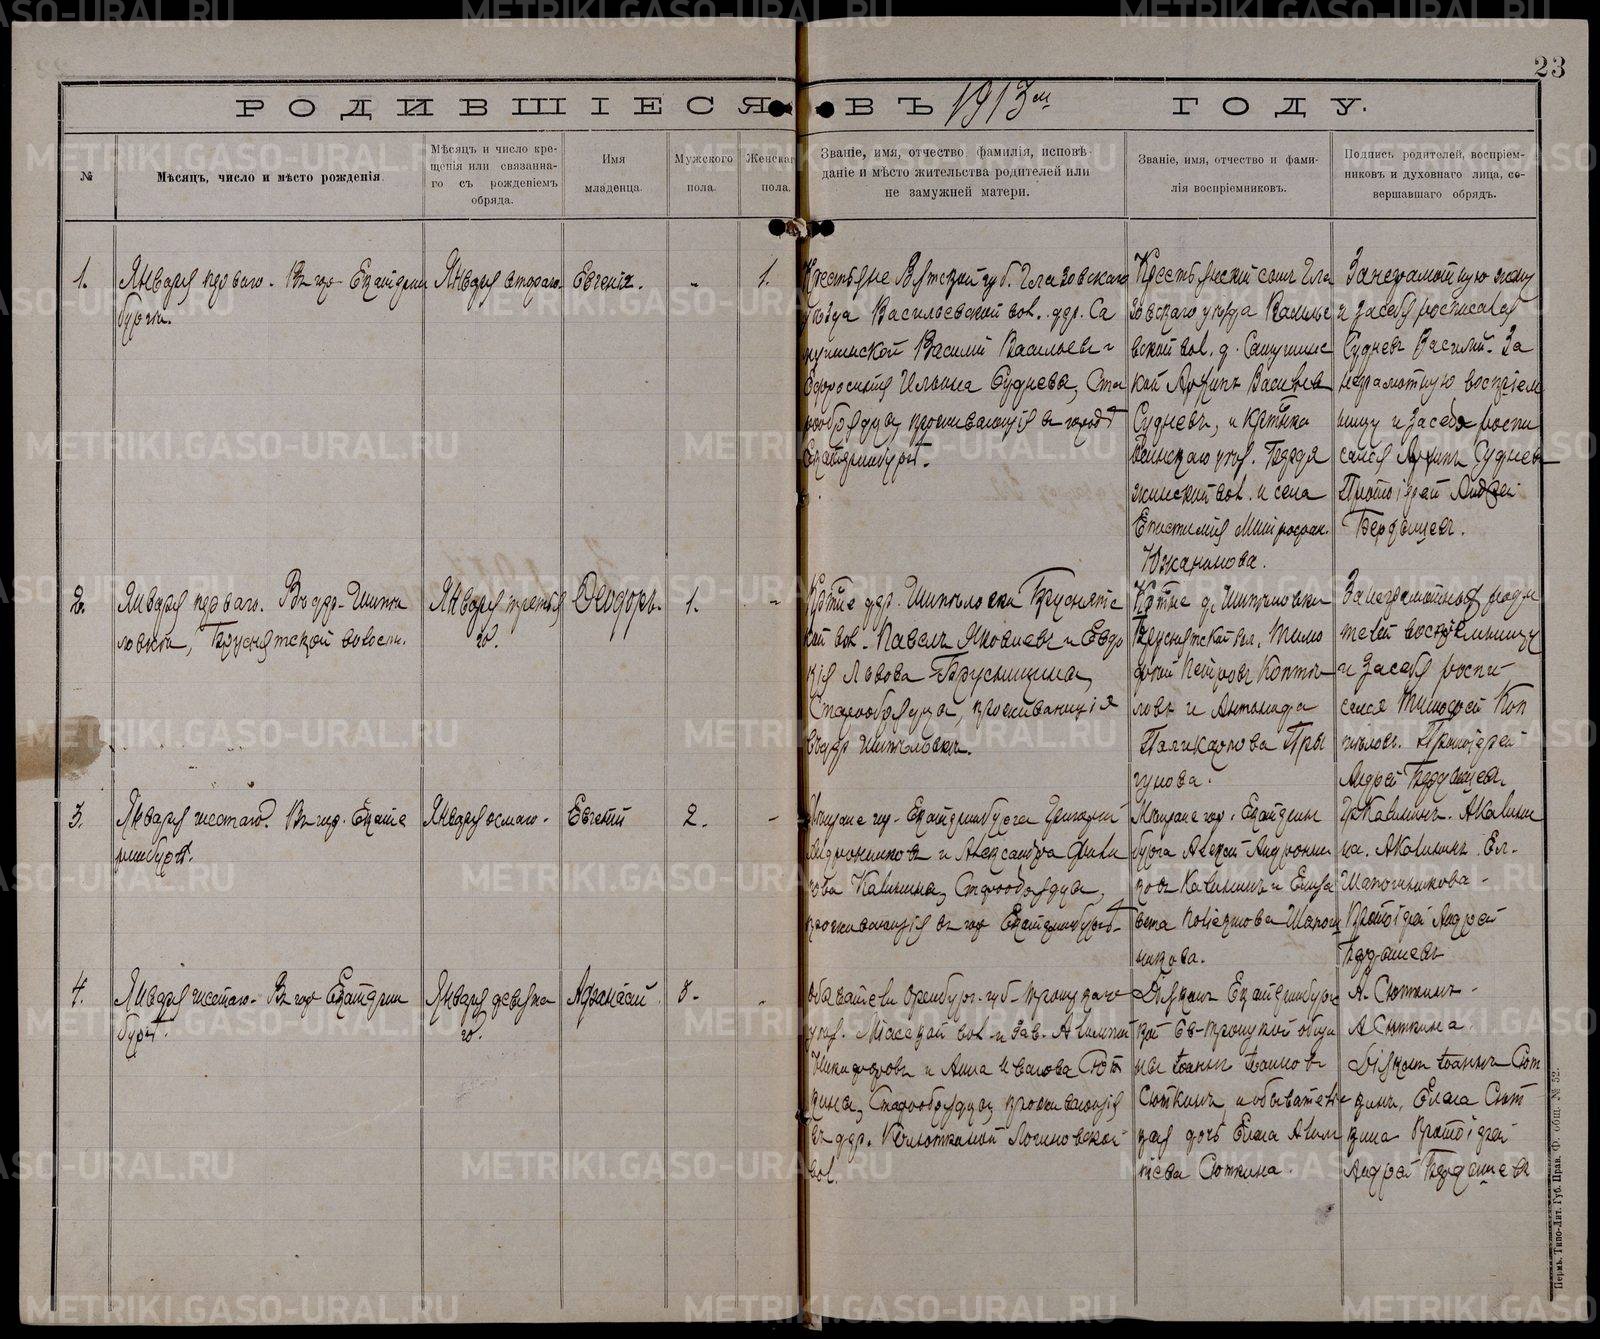 23
РОДИВШІЕСЯ ВЪ 1913 м ГОДУ.
№
Мѣсяцъ, число и мѣсто рожденія.
Мѣсяцъ и число кре-
щенія или связанна-
го съ рожденіемъ
обряда.
Имя
младенца.
Мужского
пола.
Женскаго
пола.
Званіе, имя, отчество, фамилія, исповѣ-
даніе и мѣсто жительства родителей или
не замужней матери.
Званіе, имя, отчество и фами-
лія воспріемниковъ.
Подпись родителей, воспріем-
никовъ и духовнаго лица, со-
вершавшаго обрядъ.
1.
Января перваго. Въ гор. Екатерин
бургѣ.
Января втораго.
Евгенія.
"
1.
Крестьяне Вятской губ. Глазовскаго
уѣзда Васильевской вол. дер. Са
Василій Васильевъ и
Ефросинія Ильина Судневы, Ста
рообрядцы, проживающія въ городѣ
Екатеринбургѣ.
Крестьянскій сынъ Гла
зовскаго уѣзда Василье
вской вол. д.
кой Архипъ Васильев
Судневъ, и
уѣз.
вол. и села
Епистимія Митрофан.
Южанинова.
За неграмотную жену
и за себя росписался
Судневъ Василій. За
неграмотную воспріем
ницу и за себя роспи
сался Архипъ Судневъ
Протоіерей Андрей
Бердышев.
2.
Января перваго. Въ дер. Шипи
ловки, Бруснятской волости.
Января третья
го.
Ѳеодоръ.
1.
"
дер. Шипиловки Бруснятс
кой вол. Павелъ Яковлевъ и Евдо
кія Львова Брусницины,
Старообрядцы, проживающія
въ дер. Шипиловки.
д. Шипиловки
Бруснятской вол. Тимо
фей Петровъ Коптя
ловъ и Антонида
Поликарпова Пры
гунова.
За неграмотных роди
телей воспріемницу
и за себя роспи
сался Тимофей Коп
тяловъ. Протоіерей
Андрей Бердышев
3.
Января шестаго. Въ гор. Екате
ринбургѣ.
Января осмаго.
Евгеній
2.
"
Мѣщане гор. Екатеринбурга Григорій
Андрониковъ и Александра Фили
пова Калинины, Старообрядцы,
проживающія въ гор. Екатеринбургѣ.
Мѣщане гор. Екатерин
бурга Алексѣй Андрони
ковъ Калининъ и Елиза
вета Шапош
никова.
Калининъ. А Калини
на. А Калининъ. Ел.
Шапошникова.
Протоіерей Андрей
Бердышевъ
4.
Января шестаго. Въ гор Екатерин
бургѣ.
Января девята
го.
Аѳанасій.
3.
"
Обыватели Оренбург. губ. Троицкаго
уѣз. Міасской вол. и зав. Алимпій
Никифоровъ и Анна Иванова Сют
кины, Старообрядцы, проживающія
въ дер. Логиновской
вол.
Діяконъ Екатеринбургс
кой Св-Троицкой общи
ны Іоаннъ Іоанновъ
Сюткинъ, и обыватель
ская дочь Елена Алим
піева Сюткина.
А. Сюткинъ.
А Сюткина.
Діяконъ Іоаннъ Сют
кинъ, Елена Сют
кина Протоіерей
Андрей Бердышевъ
Пермь. Типо-Лит. Губ. Прав. Ф. общ. № 52.
METRIKI.GASO-URAL.RU